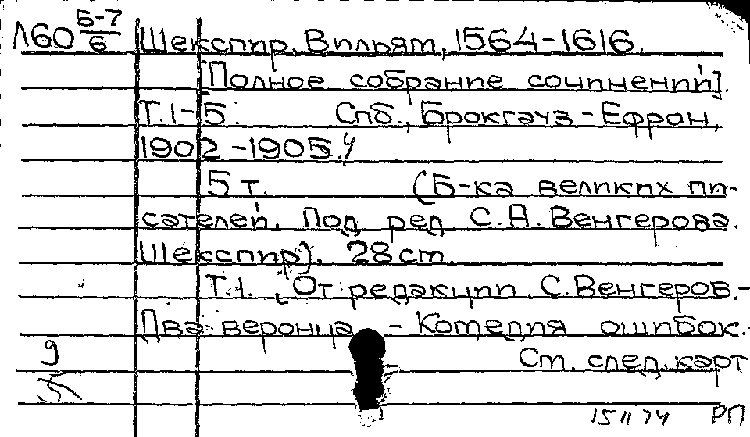 Л60 Б-7/6 Шекспир, Вильям, 1564-1616.
[Полное собрание сочинений].
Т. 1-5. Спб., Брокгауз-Ефрон,
1902-1905.
5 т. (Б-ка великих пи-
сателей. Под ред С.А. Венгерова.
Шекспир). 28 см.
Т. 1. [От редакции. С. Венгеров.-
Два веронца. - Комедия ошибок.-
9 См. след. карт
15 II 74 РП